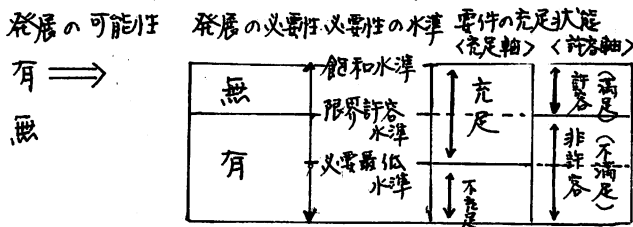 発展の可能性
有
無
発展の必要性
必要性の水準
要件の充足状態
<充足軸>
<許容軸>
無
有
飽和水準
限界許容
水準
必要最低
水準
充足
不充足
許容(満足)
非許容(不満足)